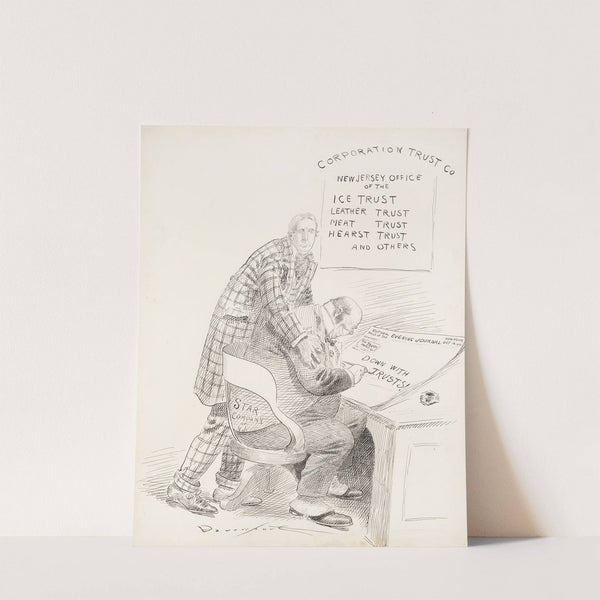 CORPORATION TRUST CO
NEW JERSEY OFFICE
OF THE
ICE TRUST
LEATHER TRUST
MEAT TRUST
HEARST TRUST
AND OTHERS
EVENING JOURNAL
DOWN WITH
TRUSTS!
STAR
COMPANY
Davenport